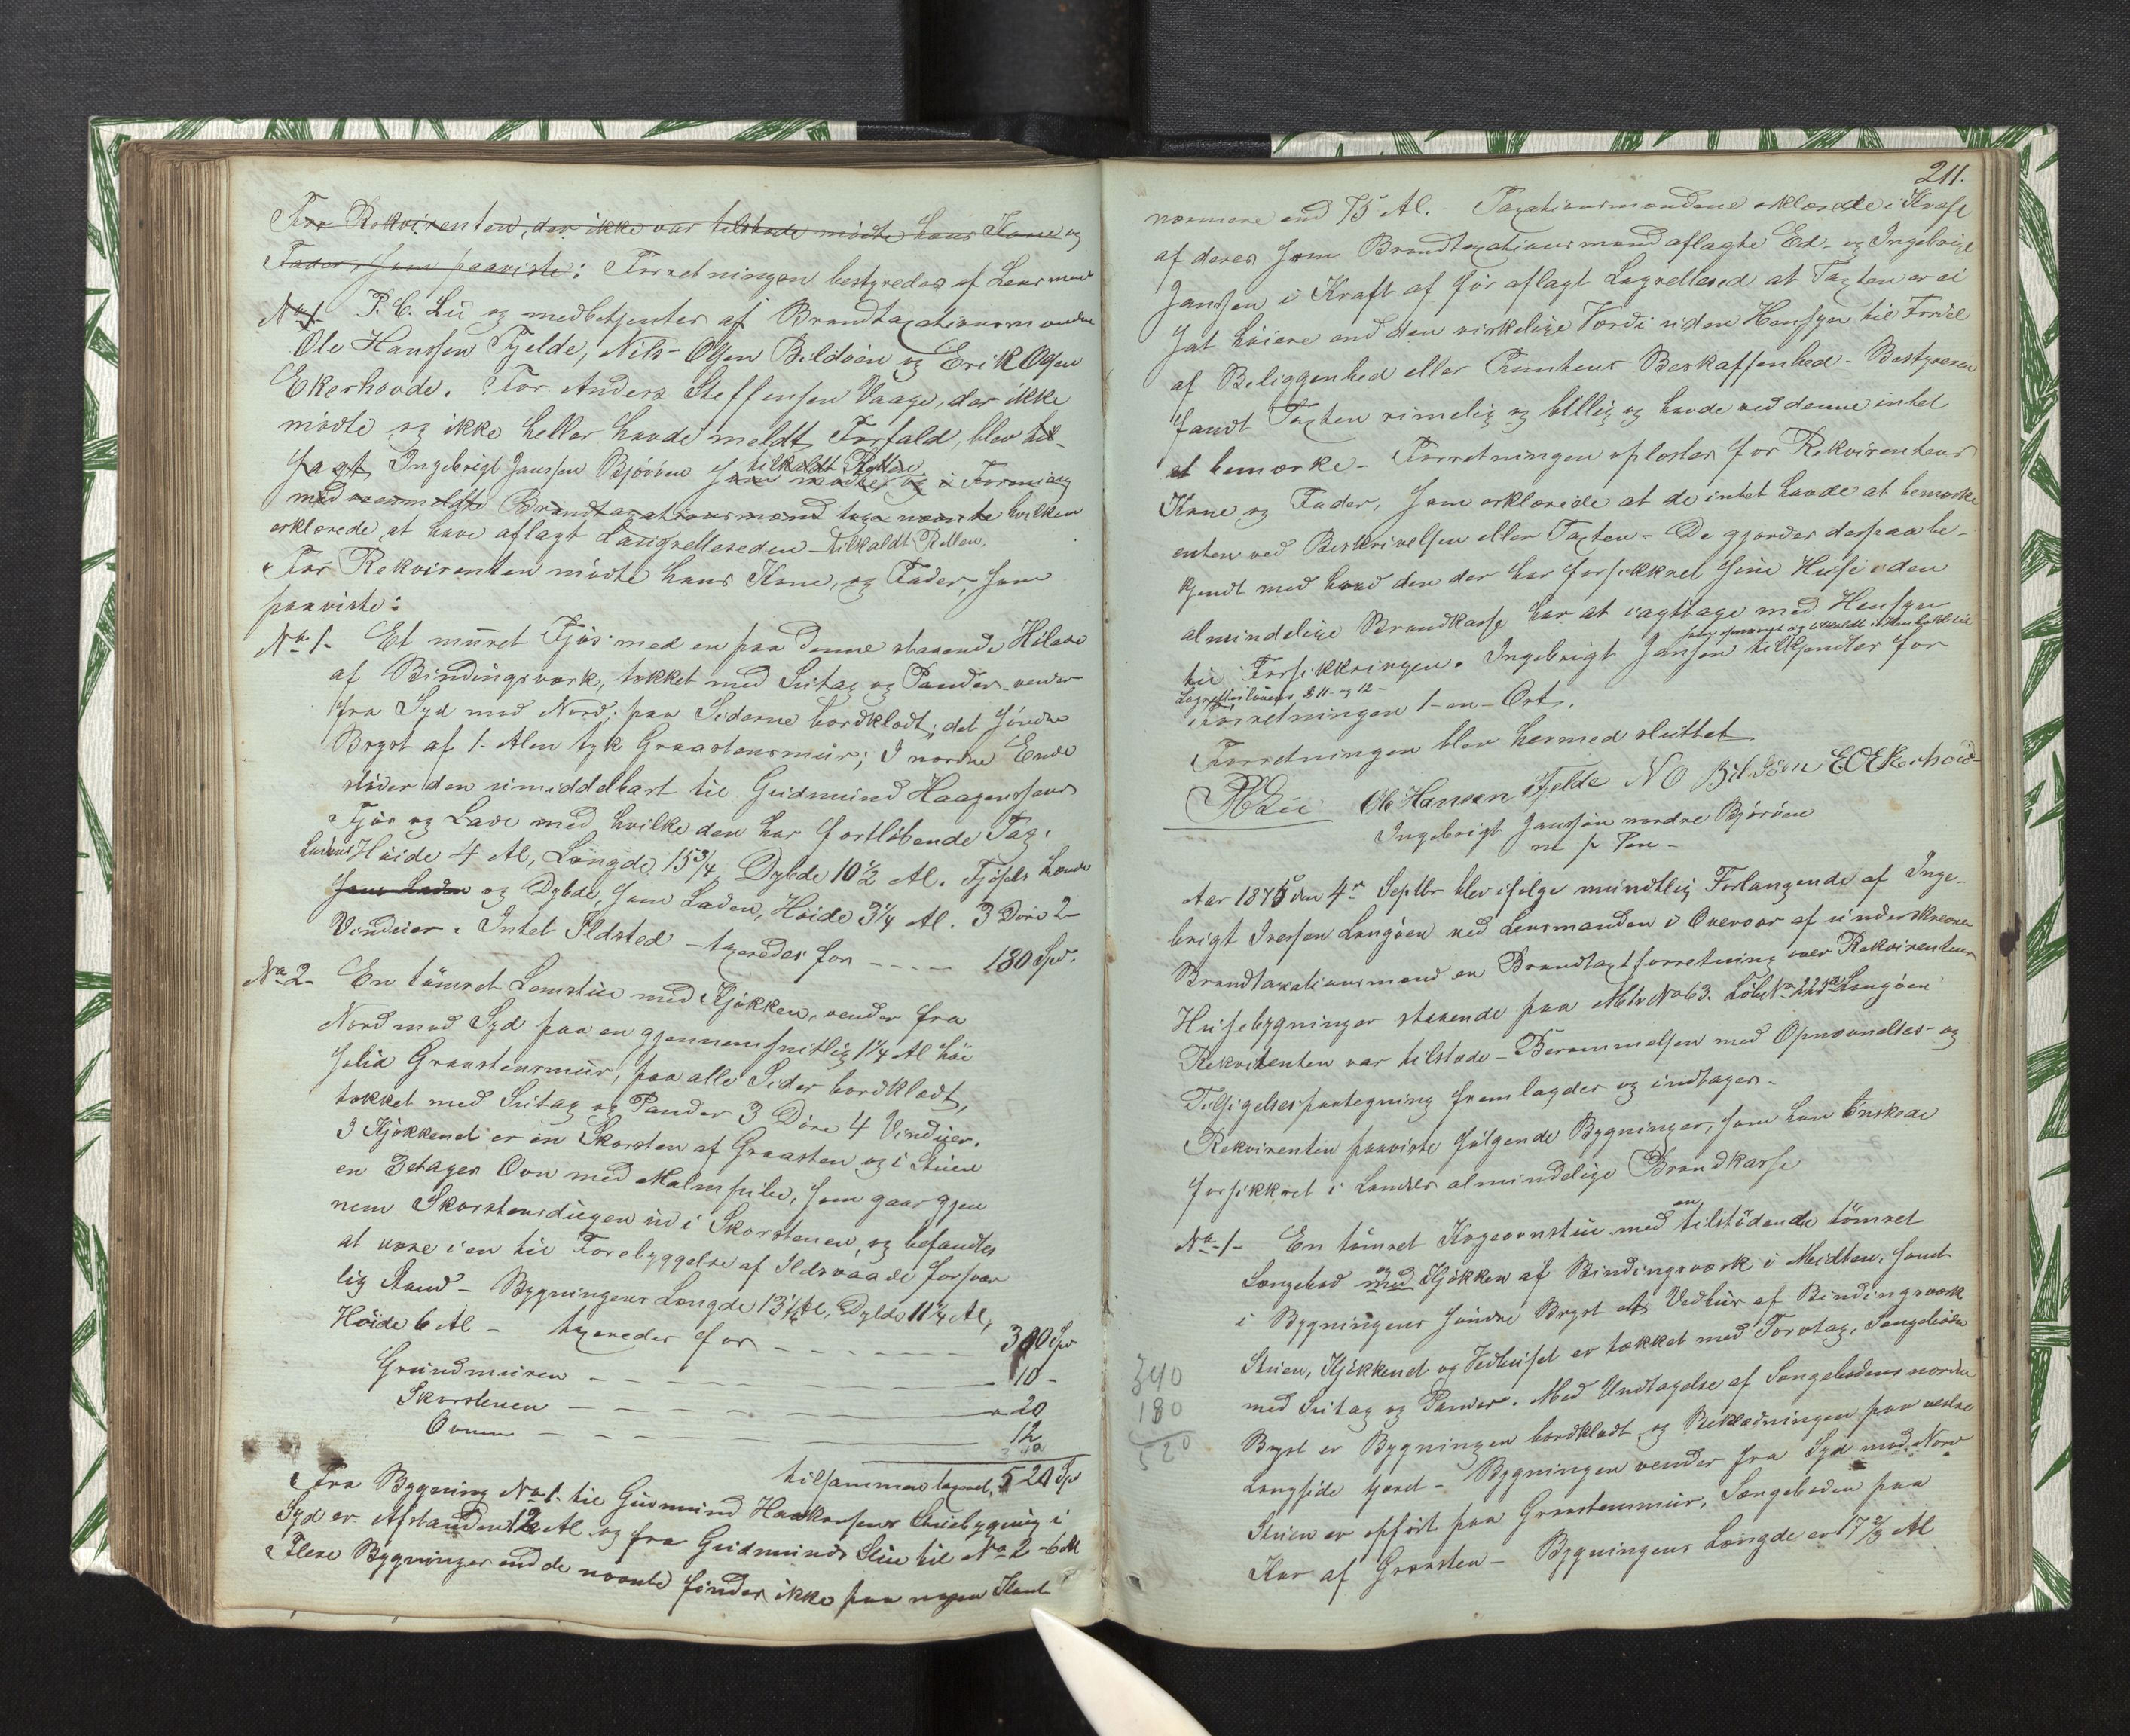 For Rekvirenten, der ikke var tilstede mødte hans Kone og
Fader, som paaviste: Forretningen bestyredes af Lensmand
No 1. P. C. Lie og medbetjentes af Brandtaxationsmændene
Ole Hanssen Fjelde, Nils Olsen Bildøen og Erik Olsen
Ekerhovde. For Anders Steffensen Vaage, der ikke
mødte og ikke heller havde meldt Forfald, blev til-
sagt Ingebrigt Janssen Bjørøen tilkaldt Retten som mødte og i Forening
med ovenmeldte Brandtaxationsmænd hvilken
erklærede at have aflagt Laugretteseden – tilkaldt Retten.
For Rekvirenten mødte hans Kone, og Fader, som
paaviste:
No 1- Et muret Fjøs med en paa denne staaende Hølade
af Bindingsværk, tækket med Sutag og Pander – vender
fra Syd mod Nord; paa Siderne bordklædt; det søndre
Bryst af 1- Alen tyk Graastensmur; I nordre Ende
støder den umiddelbart til Gudmund Haagenssens
Fjøs og Lade med hvilke den har fortløbende Tag.
Ladens Høide 4 Al, Længde 15 3/4, Dybde 10 1/2 Al. Fjøsets Længde
som Laden og Dybde, som Laden, Høide 3 1/4 Al. 3 Døre 2
Vinduer. Intet Ildsted – taxeredes for – – – – 180 Spd.
No 2- En tømret Lemstue med Kjøkken, vender fra
Nord mod Syd paa en gjennemsnitlig 1 1/4 Al høi
solid Graastensmur, paa alle Sider bordklædt,
tækket med Sutag og Pander 3 Døre 4 Vinduer.
I Kjøkkenet er en Skorsten af Graasten og i Stuen
en 3etages Ovn med Malmpibe, som gaar gjen
nem Skorstensdugen ud i Skorstenen, og befandtes
at være i en til Forebyggelse af Ildsvaade forsvar
lig Stand – Bygningens Længde 13 1/4 Al, Dybde 11 1/4 Al,
Høide 6 Al – taxeredes for – – – – – – 300 Spd
Grundmuren – – – – – – 10 –
Skorstenen – – – – – – 20
Ovnen – – – – – – 12
340
tilsammen taxeret, 520 Spd
Fra Bygning No 1. til Gudmund Haakonsens Stuebygning i
Syd er Afstanden 12 Al og fra Gudmunds Stue til No 2 – 6 Al
Flere Bygninger end de nævnte findes ikke paa nogen Kant
211.
nærmere end 75 Al. Taxationsmændene erklærede i Kraft
af deres som Brandtaxationsmænd aflagte Ed – og Ingebrigt
Janssen i Kraft af før aflagt Lagretteseed at Taxten er ei
sat høiere end den virkelige Værdi uden Hensyn til Fordel
af Beliggenhed eller Tomtens Beskaffenhed – Bestyreren
fandt Taxten rimelig og billig og havde ved denne intet
at bemærke – Forretningen oplæstes for Rekvirentens
Kone og Fader, som erklærede at de intet havde at bemærke
enten ved Beskrivelsen eller Taxten – De gjordes derpaa be-
kjendt med hvad den der har forsikkret sine Huse i den
almindelige Brandkasse har at iagttage med Hensyn
til Forsikkringen. Ingebrigt Janssen tilkjendtes for
Lagrettelovens § 11 – og 12 –
Forretningen 1- en – Ort.
Forretningen blev hermed sluttet
PCLie Ole Hansen Fjelde N O Bildøen E O Ekerhovd
Ingebrigt Janssøn nordre Bjørøen
m p Pen –
Aar 1875 den 4de Septbr blev ifølge mundtlig Forlangende af Inge-
brigt Iversen Langøen ved Lensmanden i Overvær af underskrevne
Brandtaxationsmænd en Brandtaxtforretning over Rekvirentens
Husebygninger staaende paa Matr No 63. Løbe No 225a Langøen
Rekvirenten var tilstede – Berammelsen med Opnævnelses- og
Tilsigelsespaategning fremlagdes og indtages –
Rekvirenten paaviste følgende Bygninger, som han ønskede
forsikkret i Landets almindelige Brandkasse
No 1- En tømret Kogeovnstue med en tilstødende tømret
Sængebod og med Kjøkken af Bindingsværk i Midten, samt
i Bygningens søndre Bryst et Vedhus af Bindingsværk
Stuen, Kjøkkenet og Vedhuset er tækket med Torvtag, Sengeboden
340
180
520
med Sutag og Pander. Med Undtagelse af Sengebodens nordre
Bryst er Bygningen bordklædt og Beklædningen paa vestre
Langside tjæret – Bygningen vender fra Syd mod Nord
Stuen er opført paa Graastensmur, Sængeboden paa
Kar af Graasten – Bygningens Længde er 17 2/3 Al